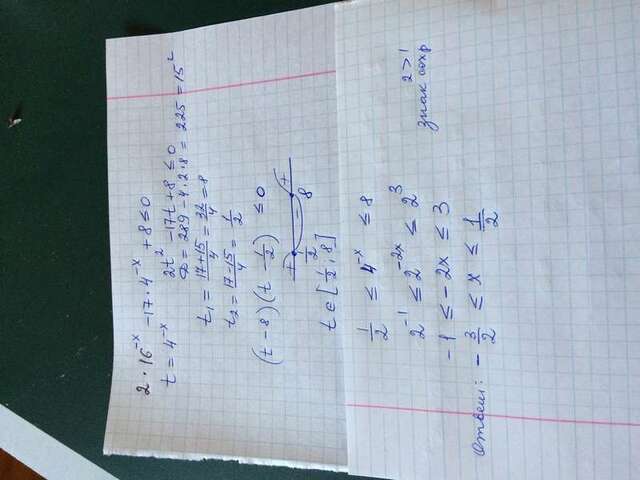 2 · 16^{-x} - 17 · 4^{-x} + 8 ≤ 0
t = 4^{-x} 2t² - 17t + 8 ≤ 0
D = 289 - 4 · 2 · 8 = 225 = 15²
t₁ = \frac{17+15}{4} = \frac{32}{4} = 8
t₂ = \frac{17-15}{4} = \frac{1}{2}
(t - 8)(t - \frac{1}{2}) ≤ 0
+ - +
\frac{1}{2} 8
t ∈ [\frac{1}{2}, 8]
\frac{1}{2} ≤ 4^{-x} ≤ 8
2^{-1} ≤ 2^{-2x} ≤ 2^{3} 2 > 1
знак сохр
-1 ≤ -2x ≤ 3
Ответ: -\frac{3}{2} ≤ x ≤ \frac{1}{2}